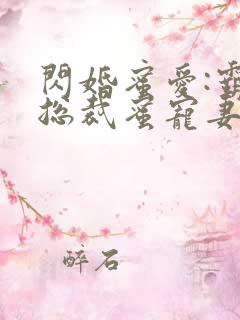 閃婚蜜愛:
總裁蜜寵妻
醉石